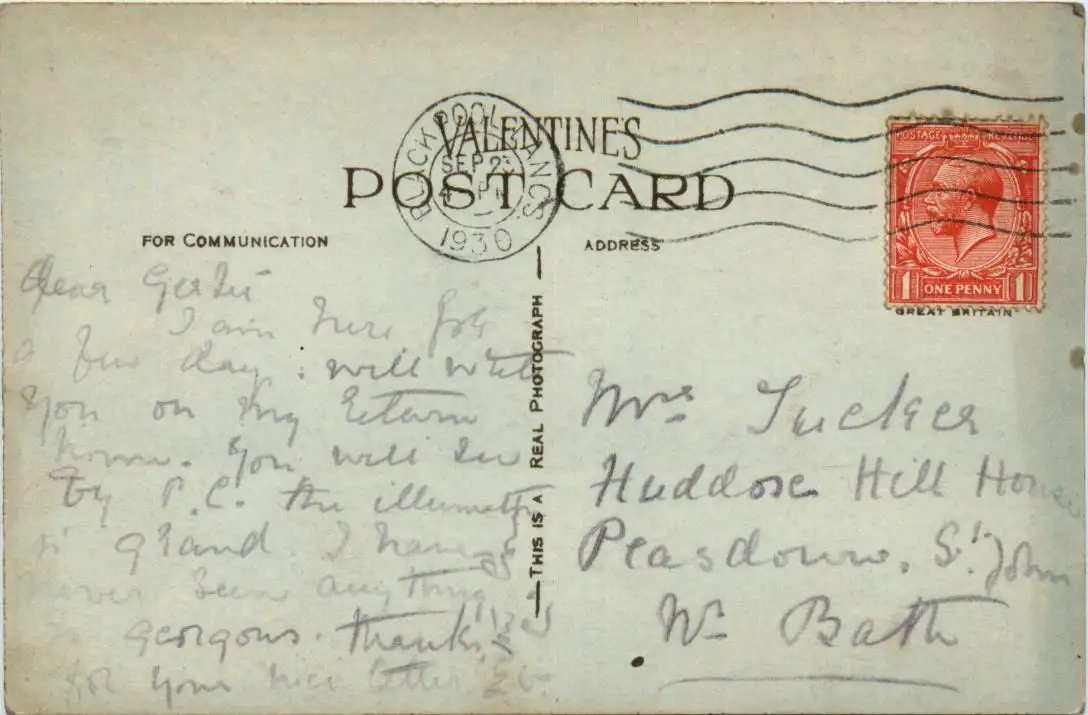 VALENTINE'S
POST CARD
BLACKPOOL LANCS
SEP 2
1930
POSTAGE REVENUE
1 ONE PENNY 1
GREAT BRITAIN
FOR COMMUNICATION
ADDRESS
THIS IS A REAL PHOTOGRAPH
Dear Gertie
I am here for
a few day. will write
you on my return
home. You will see
by P.C. the
is grand. I have
never seen anything
so georgous. thanks
for your nice letter
Mrs Tucker
Huddox Hill House
Peasdown, St. John
Nr Bath